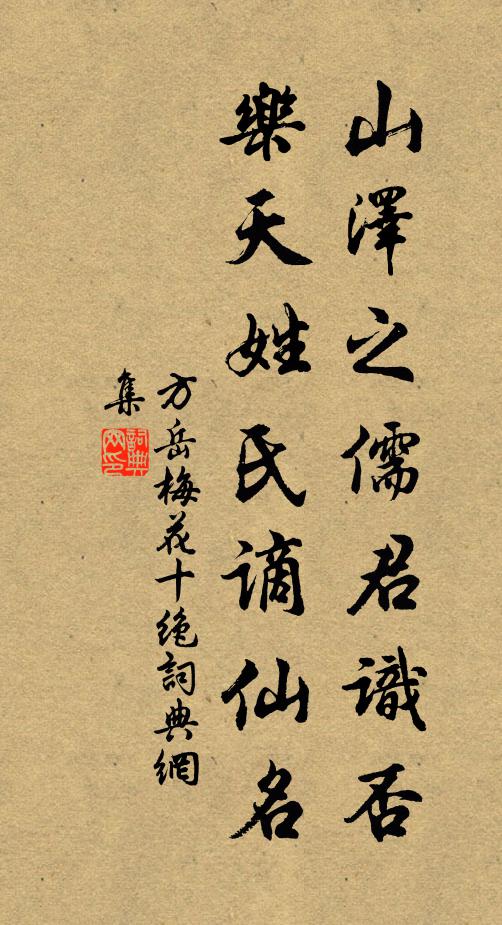 山澤之儒君識否
樂天姓氏謫仙名
方岳梅花十絶詞典網
集
詞典網印